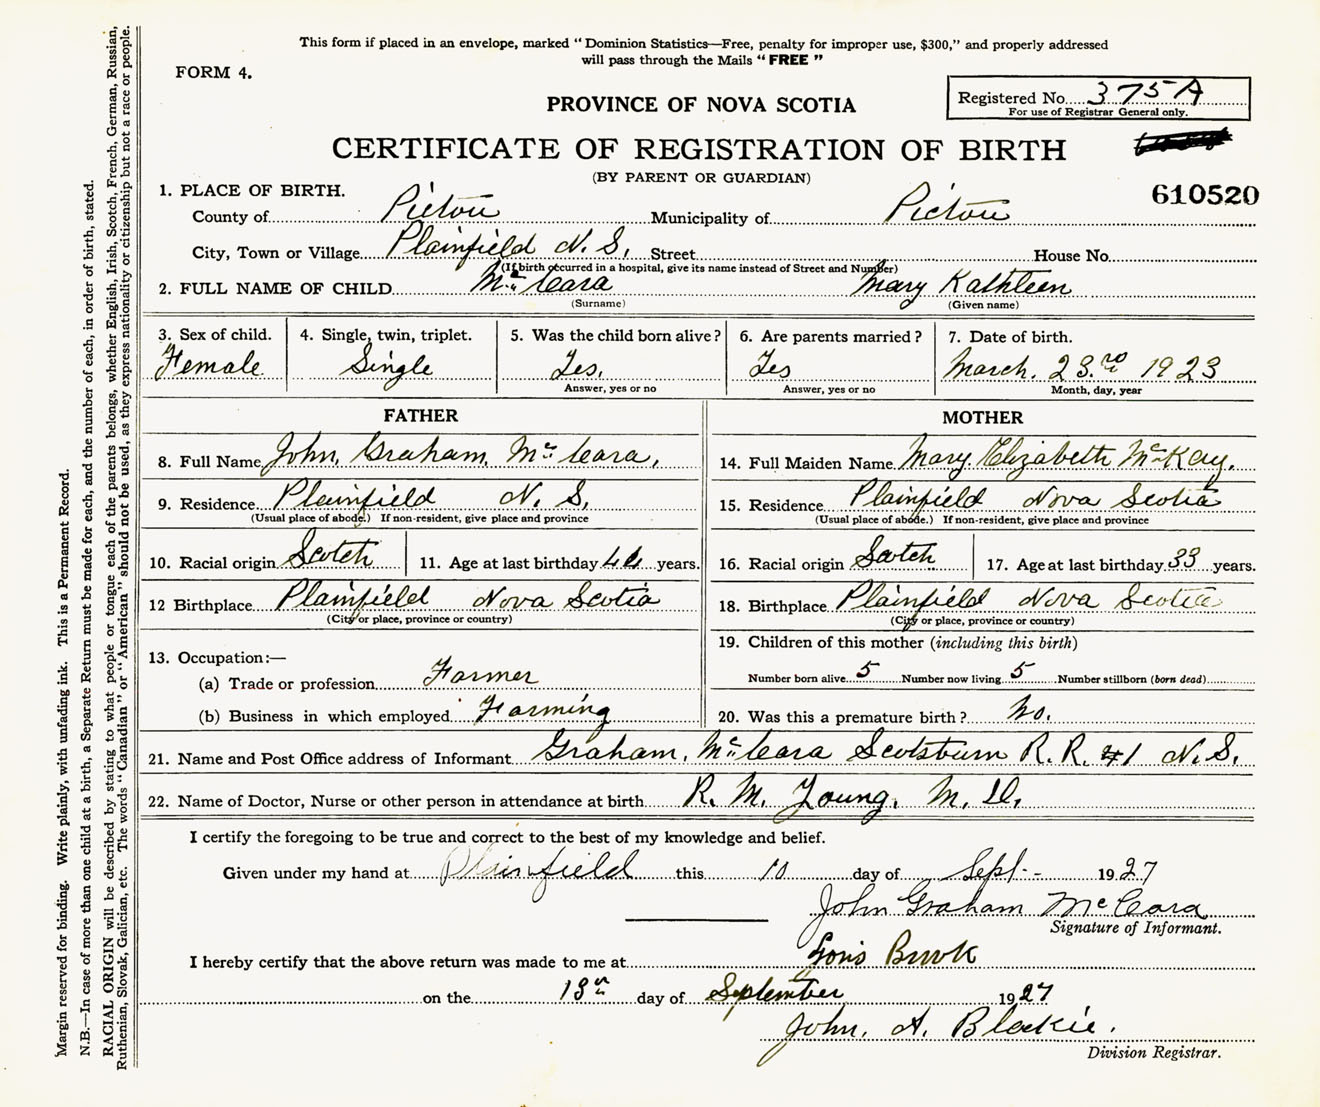 This form if placed in an envelope, marked “Dominion Statistics—Free, penalty for improper use, $300,” and properly addressed
will pass through the Mails “FREE”
FORM 4.
Registered No. 375A
For use of Registrar General only.
PROVINCE OF NOVA SCOTIA
CERTIFICATE OF REGISTRATION OF BIRTH
(BY PARENT OR GUARDIAN)
610520
1. PLACE OF BIRTH.
County of Pictou Municipality of Pictou
City, Town or Village Plainfield N.S. Street House No.
(If birth occurred in a hospital, give its name instead of Street and Number)
2. FULL NAME OF CHILD McCara Mary Kathleen
(Surname) (Given name)
3. Sex of child. 4. Single, twin, triplet. 5. Was the child born alive? 6. Are parents married? 7. Date of birth.
Female Single Yes. Yes March. 23rd 1923
Answer, yes or no Answer, yes or no Month, day, year
FATHER MOTHER
8. Full Name John, Graham, McCara, 14. Full Maiden Name Mary Elizabeth McKay.
9. Residence Plainfield N.S. 15. Residence Plainfield Nova Scotia
(Usual place of abode.) If non-resident, give place and province (Usual place of abode.) If non-resident, give place and province
10. Racial origin Scotch 11. Age at last birthday years. 16. Racial origin Scotch 17. Age at last birthday 33 years.
12 Birthplace Plainfield Nova Scotia 18. Birthplace Plainfield Nova Scotia
(City or place, province or country) (City or place, province or country)
13. Occupation:— 19. Children of this mother (including this birth)
(a) Trade or profession Farmer Number born alive 5 Number now living 5 Number stillborn (born dead)
(b) Business in which employed Farming 20. Was this a premature birth? No.
21. Name and Post Office address of Informant Graham, McCara Scotsburn R.R. #1 N.S.
22. Name of Doctor, Nurse or other person in attendance at birth R. M. Young, M.D.
I certify the foregoing to be true and correct to the best of my knowledge and belief.
Given under my hand at Plainfield this 10 day of Sept.- 1927
John Graham McCara
Signature of Informant.
I hereby certify that the above return was made to me at Brook
on the 13th day of September 1927
John. A. Blackie.
Division Registrar.
Margin reserved for binding. Write plainly, with unfading ink. This is a Permanent Record.
N.B.—In case of more than one child at a birth, a Separate Return must be made for each, and the number of each, in order of birth, stated.
RACIAL ORIGIN will be described by stating to what people or tongue each of the parents belongs, whether English, Irish, Scotch, French, German, Russian,
Ruthenian, Slovak, Galician, etc. The words “Canadian” or “American” should not be used, as they express nationality or citizenship but not a race or people.